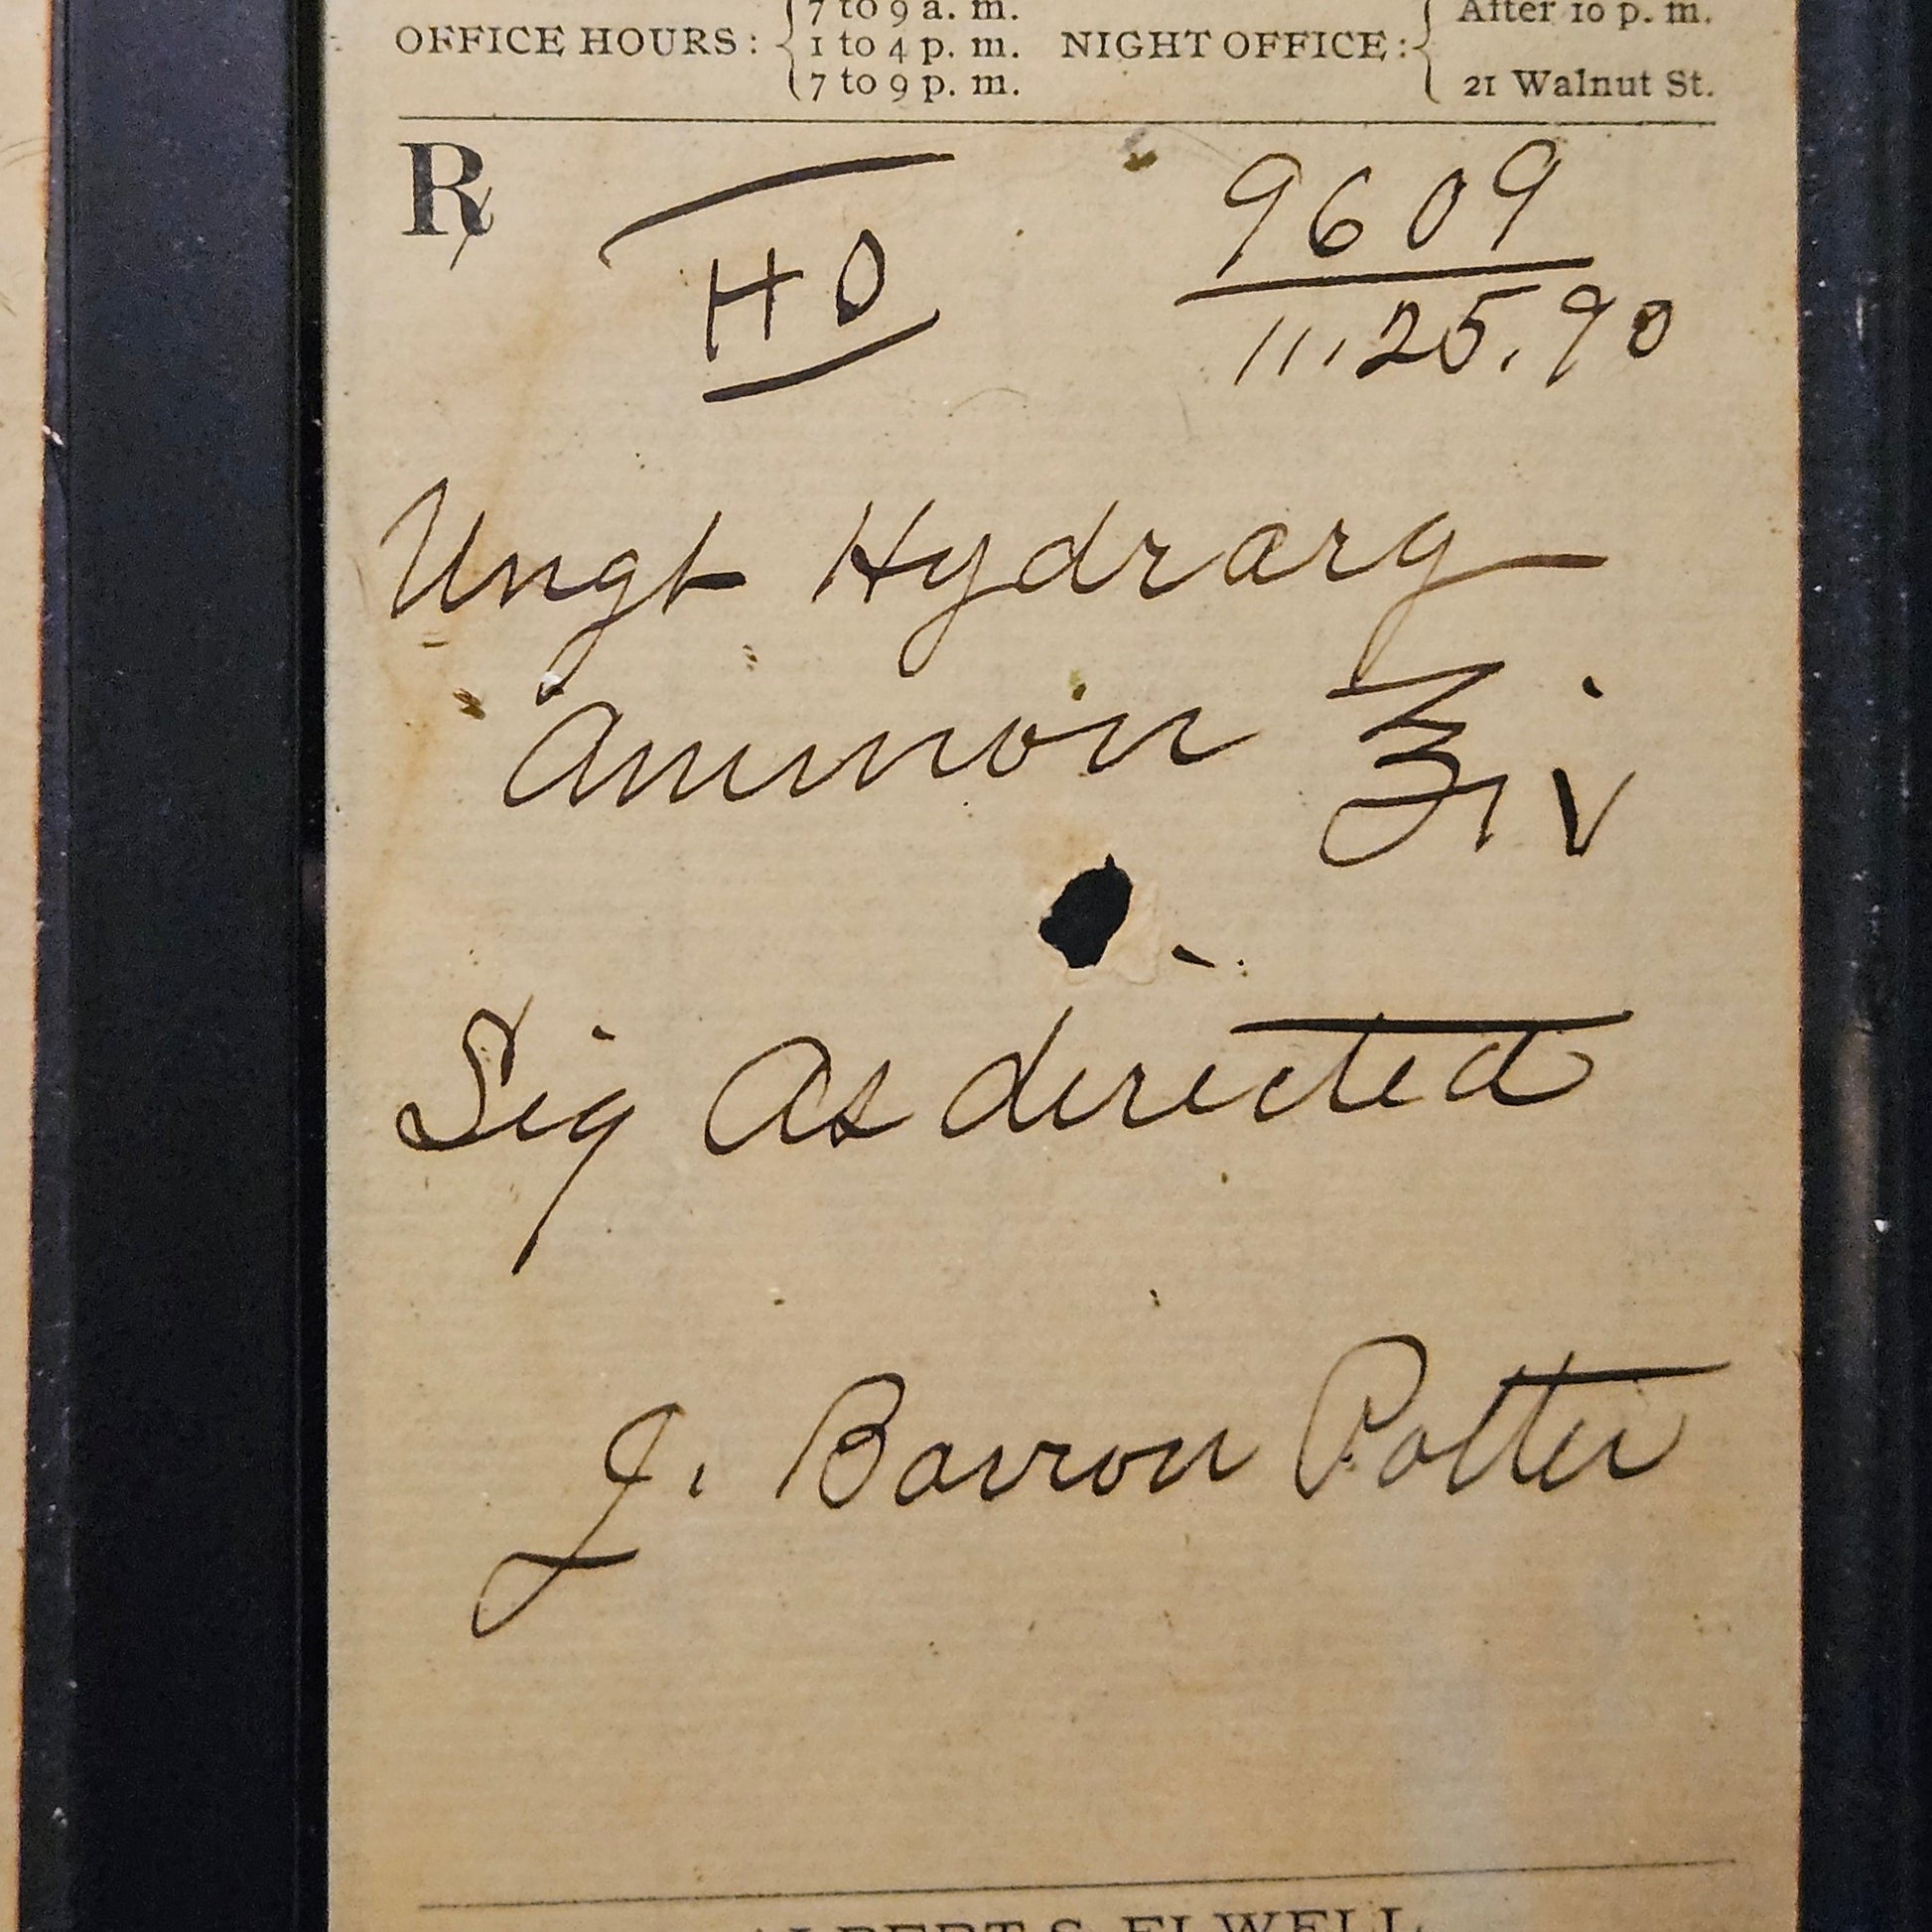 7 to 9 a. m.
OFFICE HOURS: 1 to 4 p. m.
7 to 9 p. m.
After 10 p. m.
NIGHT OFFICE:
21 Walnut St.
℞
HO
9609
11.25.90
Ungt Hydrarg
Ammon ℥iv
Sig As directed
J. Barron Potter
ALBERT S. ELWELL